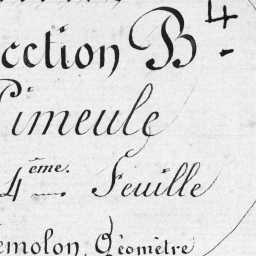 ection B 4
Pimeule
4ème. Feuille
emolon, Géomètre